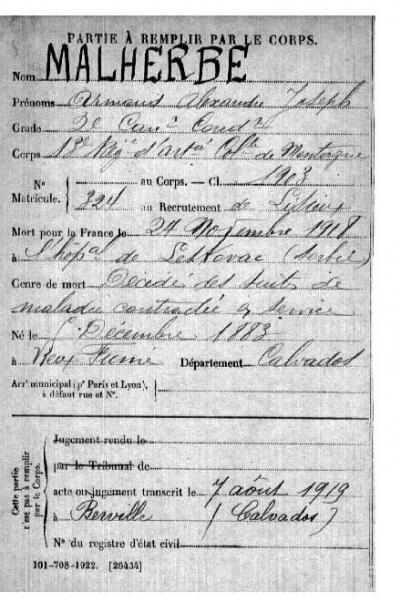 PARTIE À REMPLIR PAR LE CORPS.
Nom MALHERBE
Prénoms Armand Alexandre Joseph
Grade 2e Can. Cond.
Corps 1er Reg. d'art. de Montagne
N° au Corps. — Cl. 1903
Matricule. 324 au Recrutement de Lisieux
Mort pour la France le 24 Novembre 1918
à l'hôpal de Leskovac (Serbie)
Genre de mort Décédé des suites de
maladie contractée en service
Né le Décembre 1883
à Vieux Fumé Département Calvados
Arrt municipal (pr Paris et Lyon),
à défaut rue et N°.
Cette partie
n'est pas à remplir
par le Corps.
Jugement rendu le
par le Tribunal de
acte ou jugement transcrit le 7 août 1919
à Berville (Calvados)
N° du registre d'état civil
101-708-1922. [26434]